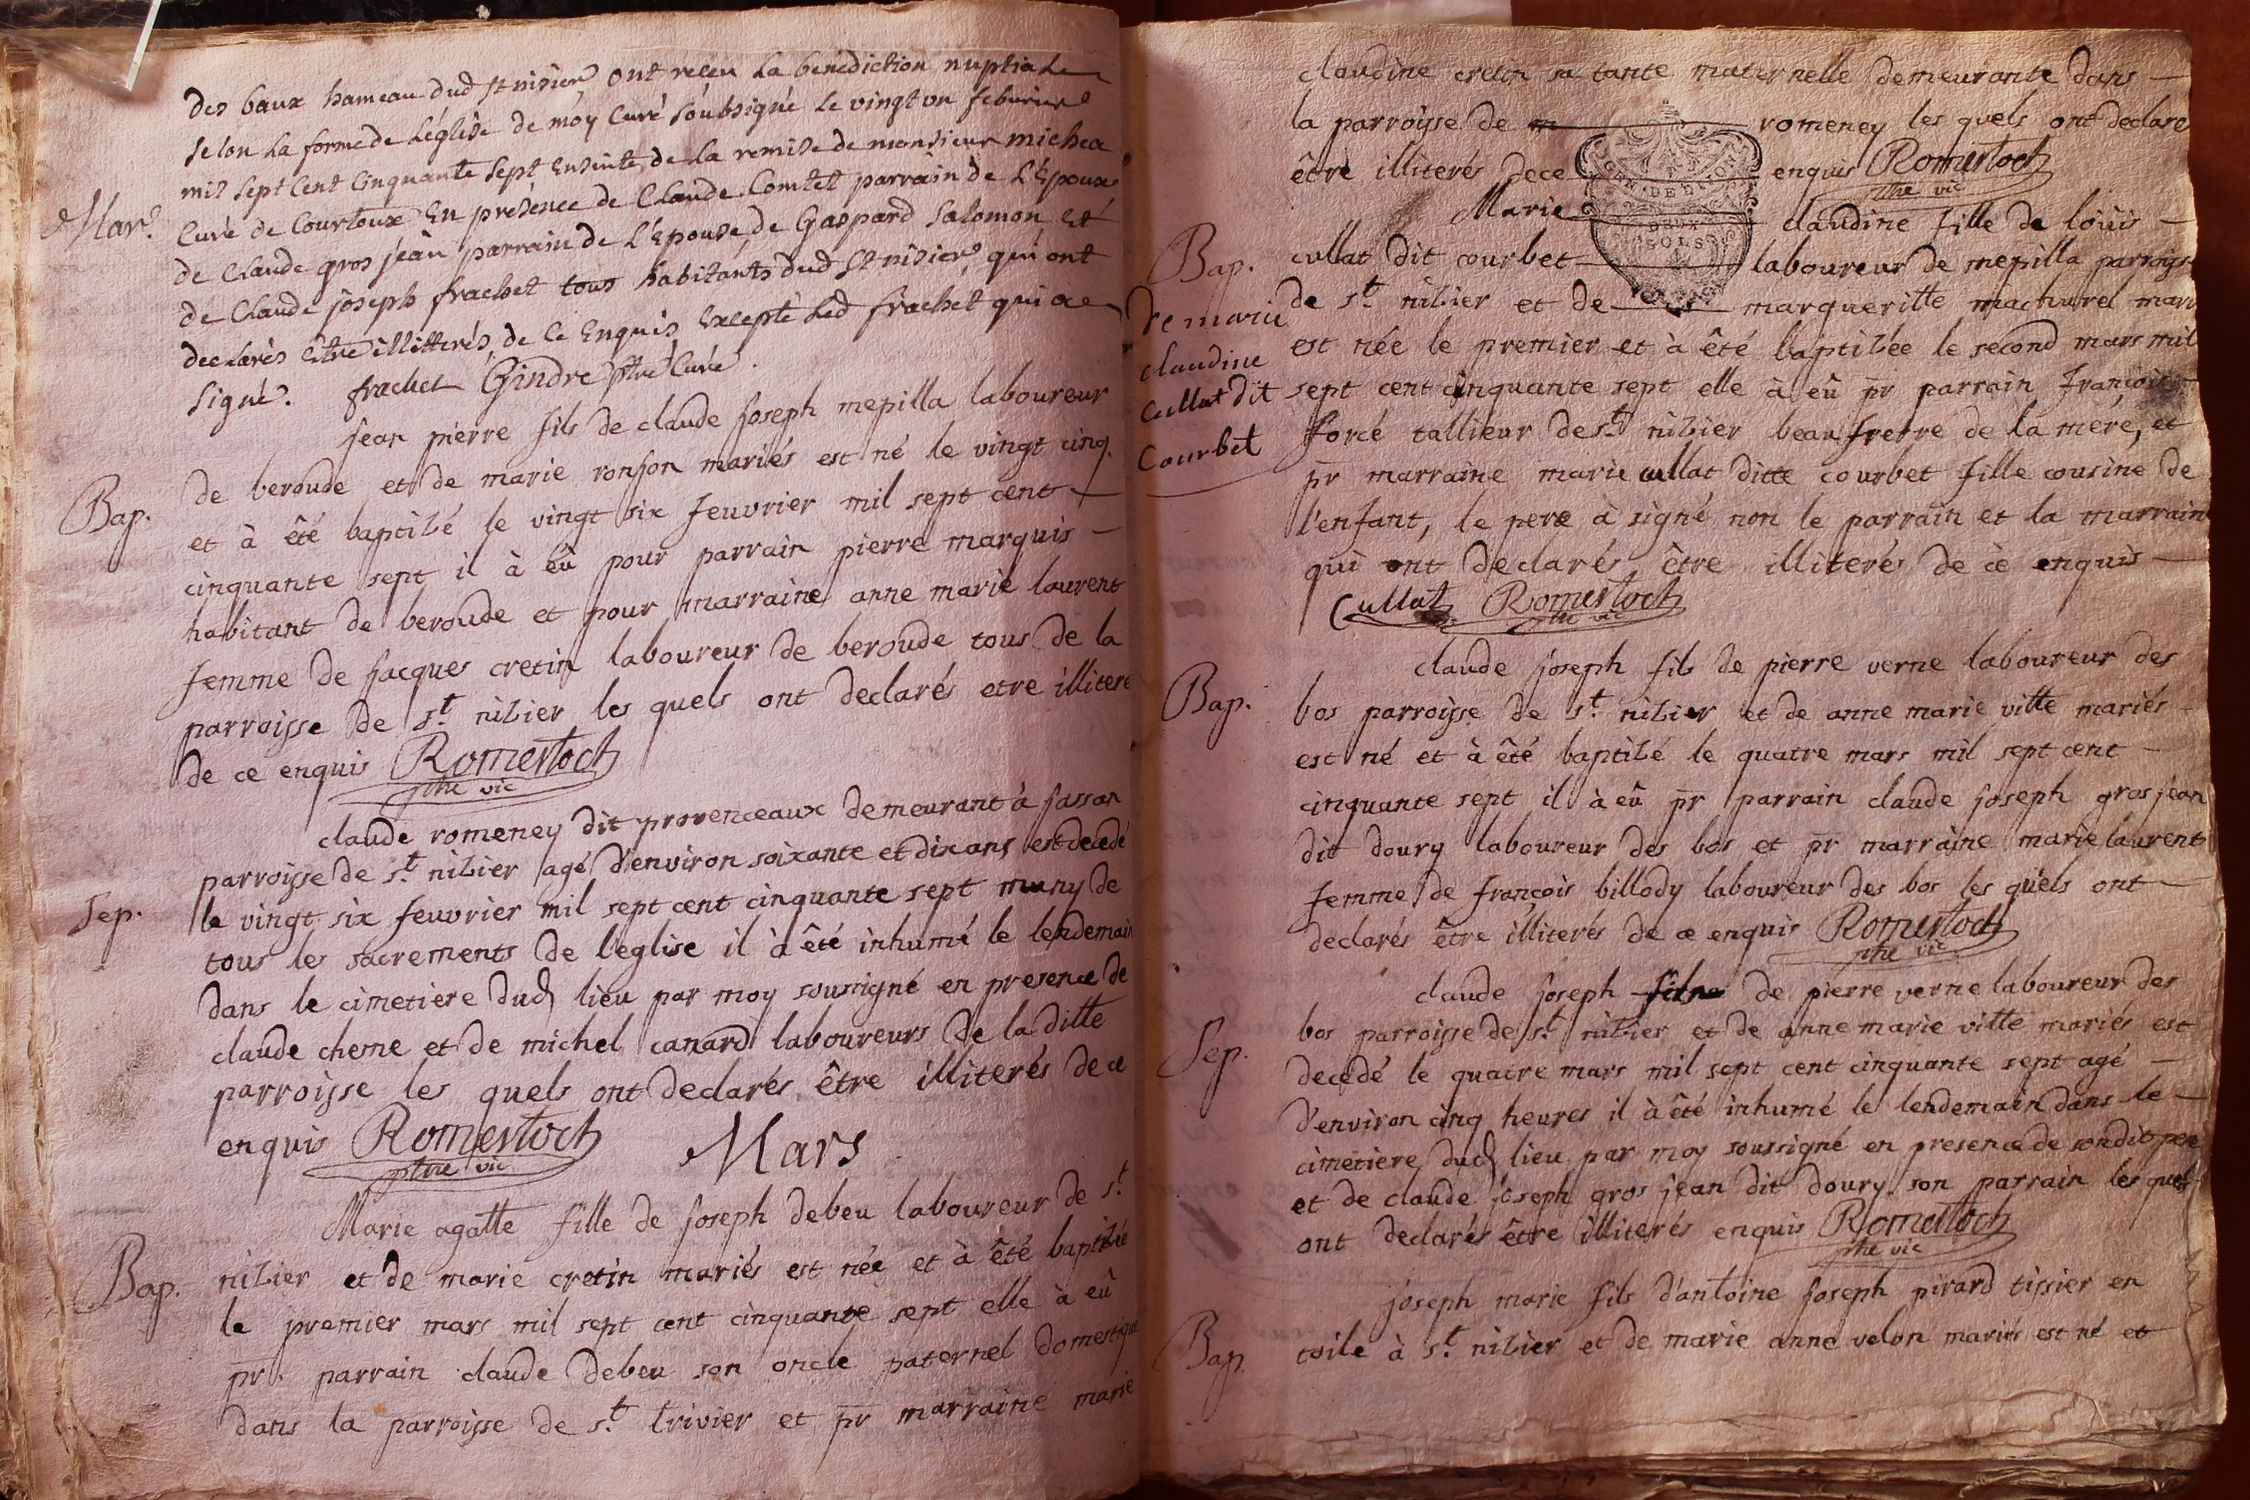 des baux hameau dud st nisier ont receu la bénédiction nuptiale
selon la forme de l'église de moy curé soubsigné le vingt un feburier
mil sept cent cinquante sept ensuite de la remise de monsieur michea
Mar.
curé de Courtoux en présence de Claude Comtet parrain de l'Epoux
de Claude gros jean parrain de l'Epouse, de Gaspard Salomon et
de Claude joseph frachet tous habitants dud st nisier qui ont
declarés être illitterés de ce enquis excepté led frachet qui a
signé. frachet Gindre ptre Curé.
jean pierre fils de claude joseph mepilla laboureur
Bap.
de beroude et de marie ronjon mariés est né le vingt cinq
et à êté baptizé le vingt six feuvrier mil sept cent
cinquante sept il à êû pour parrain pierre marquis
habitant de beroude et pour marraine anne marie laurent
femme de jacques cretin laboureur de beroude tous de la
parroisse de st nizier les quels ont declarés etre illiteré
de ce enquis Romertoch
ptre vic
claude romeney dit provenceaux demeurant à fassan
parroisse de st nizier agé d'environ soixante et dix ans est decedé
Sep.
le vingt six feuvrier mil sept cent cinquante sept muny de
tous les sacrements de l'eglise il à êté inhumé le lendemain
dans le cimetiere dud lieu par moy soussigné en presence de
claude chene et de michel canard laboureurs de la ditte
parroisse les quels ont declarés être illiterés de ce
enquis Romertoch
ptre vic
Mars
Marie agatte fille de joseph debeu laboureur de st
Bap.
nizier et de marie cretin mariés est née et à êté baptizée
le premier mars mil sept cent cinquante sept elle à eû
pr parrain claude debeu son oncle paternel domestique
dans la parroisse de st trivier et pr marraine marie
claudine cretin sa tante maternelle demeurante dans
la parroisse de romeney les quels ont declaré
être illiterés de ce enquis Romertoch
ptre vic
GEN. DE DIJON
DEUX
SOLS
Marie claudine fille de loüis
Bap.
cullat dit courbet laboureur de mepilla parroisse
de marie
claudine
Cullat dit
Courbet
de st nizier et de margueritte machurel mari
est née le premier et à êté baptizée le second mars mil
sept cent cinquante sept elle à eû pr parrain françois
forcé tallieur de st nizier beaufrerre de la mere, et
pr marraine marie cullat ditte courbet fille cousine de
l'enfant, le pere à signé non le parrain et la marraine
qui ont declarés être illiterés de cè enquis
Cullat Romertoch
ptre vic
claude joseph fils de pierre verne laboureur des
Bap.
bos parroisse de st nizier et de anne marie vitte mariés
est né et à êté baptizé le quatre mars mil sept cent
cinquante sept il à eû pr parrain claude joseph gros jean
dit doury laboureur des bos et pr marraine marie laurent
femme de françois billody laboureur des bos les quels ont
declarés être illiterés de ce enquis Romertoch
ptre vic
claude joseph de pierre verne laboureur des
Sep.
bos parroisse de st nizier et de anne marie vitte mariés est
decedé le quatre mars mil sept cent cinquante sept agé
d'environ cinq heures il à êté inhumé le lendemain dans le
cimetiere dud lieu par moy soussigné en presence de sondit pere
et de claude joseph gros jean dit doury son parrain les quels
ont declarés être illiterés enquis Romertoch
ptre vic
joseph marie fils d'antoine joseph pirard tissier en
Bap.
toile à st nizier et de marie anne velon mariés est né et